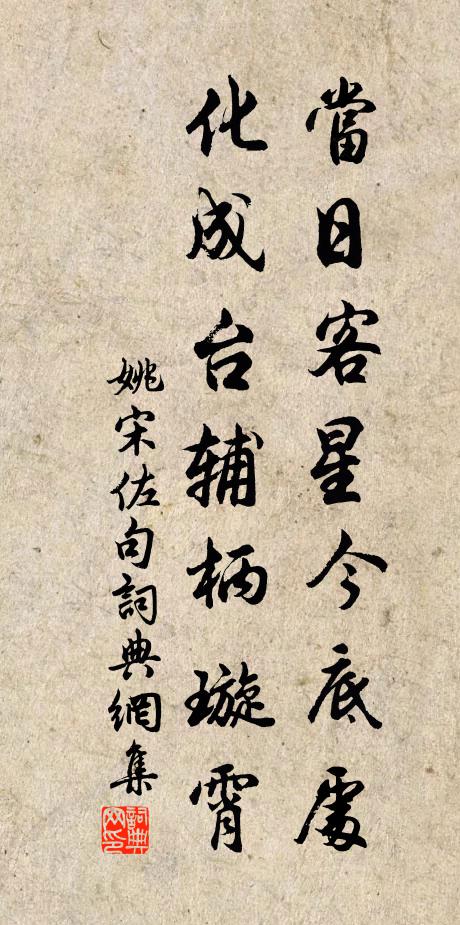 當日客星今底處
化成台辅柄璇霄
姚宋佐句詞典網集
詞典网印